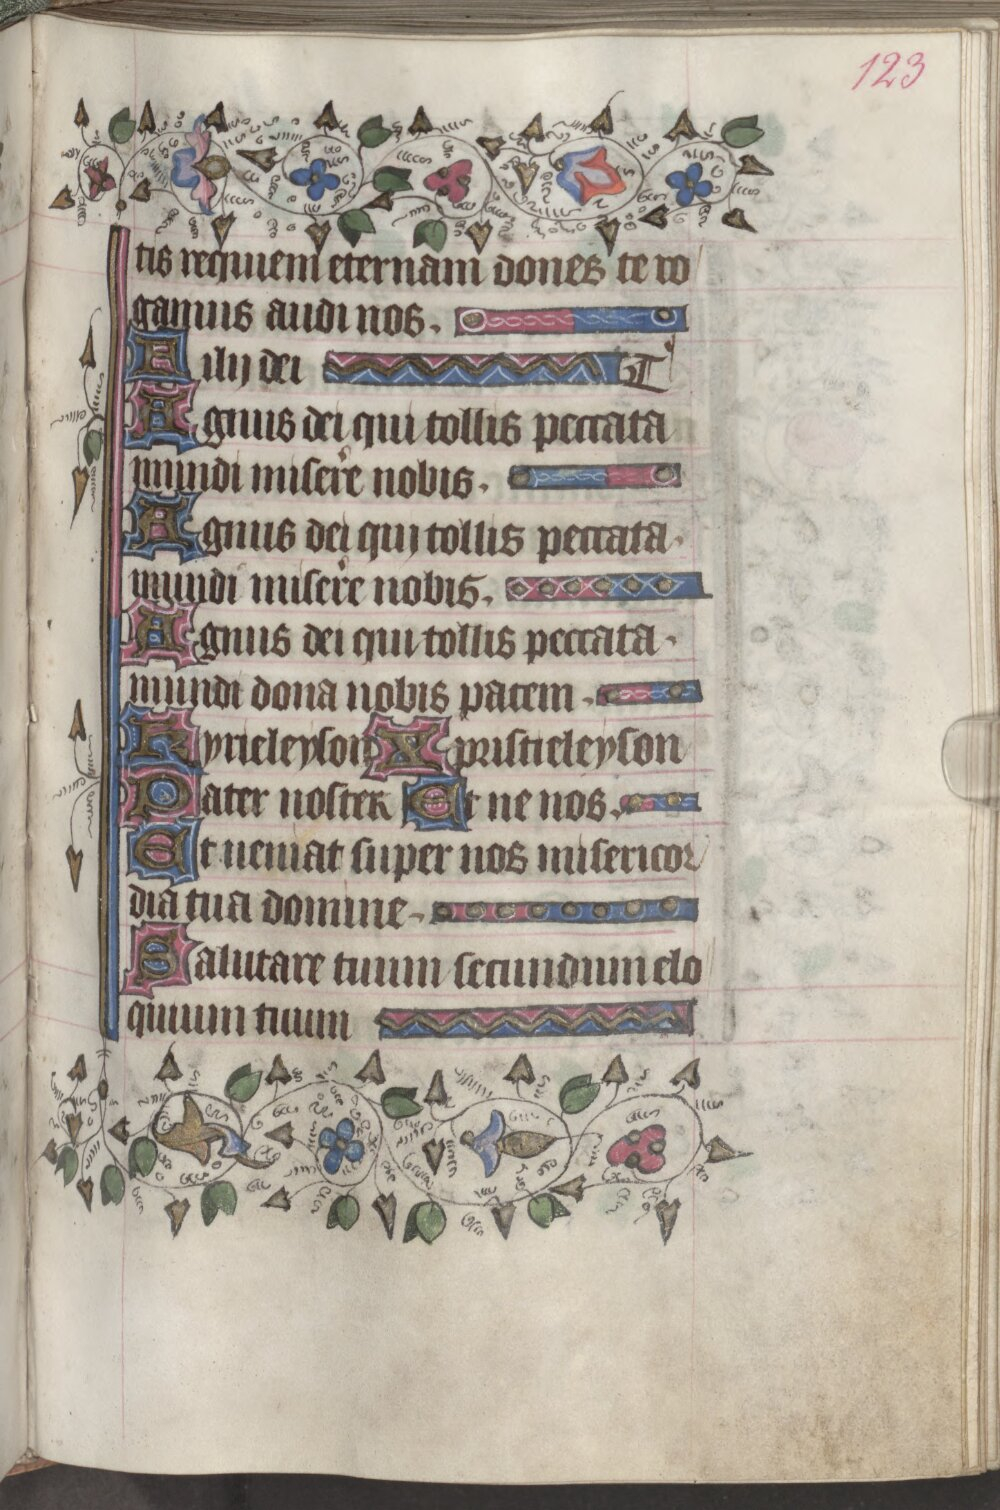 123
tis requiem eternam dones te ro
gamus audi nos.
Filij dei T
Agnus dei qui tollis peccata
mundi misere nobis.
Agnus dei qui tollis peccata.
mundi miserere nobis.
Agnus dei qui tollis peccata.
mundi dona nobis pacem.
Kyrieleyson Xpristieleyson
Pater noster Et ne nos.
Et ueniat super nos misericor
dia tua domine.
Salutare tuum secundum elo
quium tuum